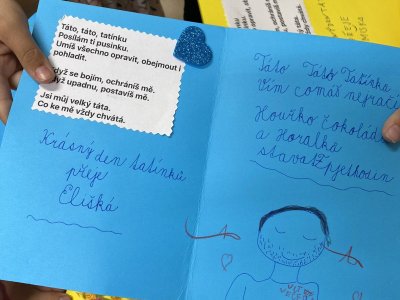 Táto, táto, tatínku
Posílám ti pusinku.
Umíš všechno opravit, obejmout i
pohladit.
když se bojím, ochráníš mě.
když upadnu, postavíš mě.
Jsi můj velký táta.
Co ke mě vždy chvátá.
Krásný den tatínku
přeje
Eliška
Táto Táto Tatínku
Vím co máš nejrač
Hořko čokolád
a Horalka
stavat